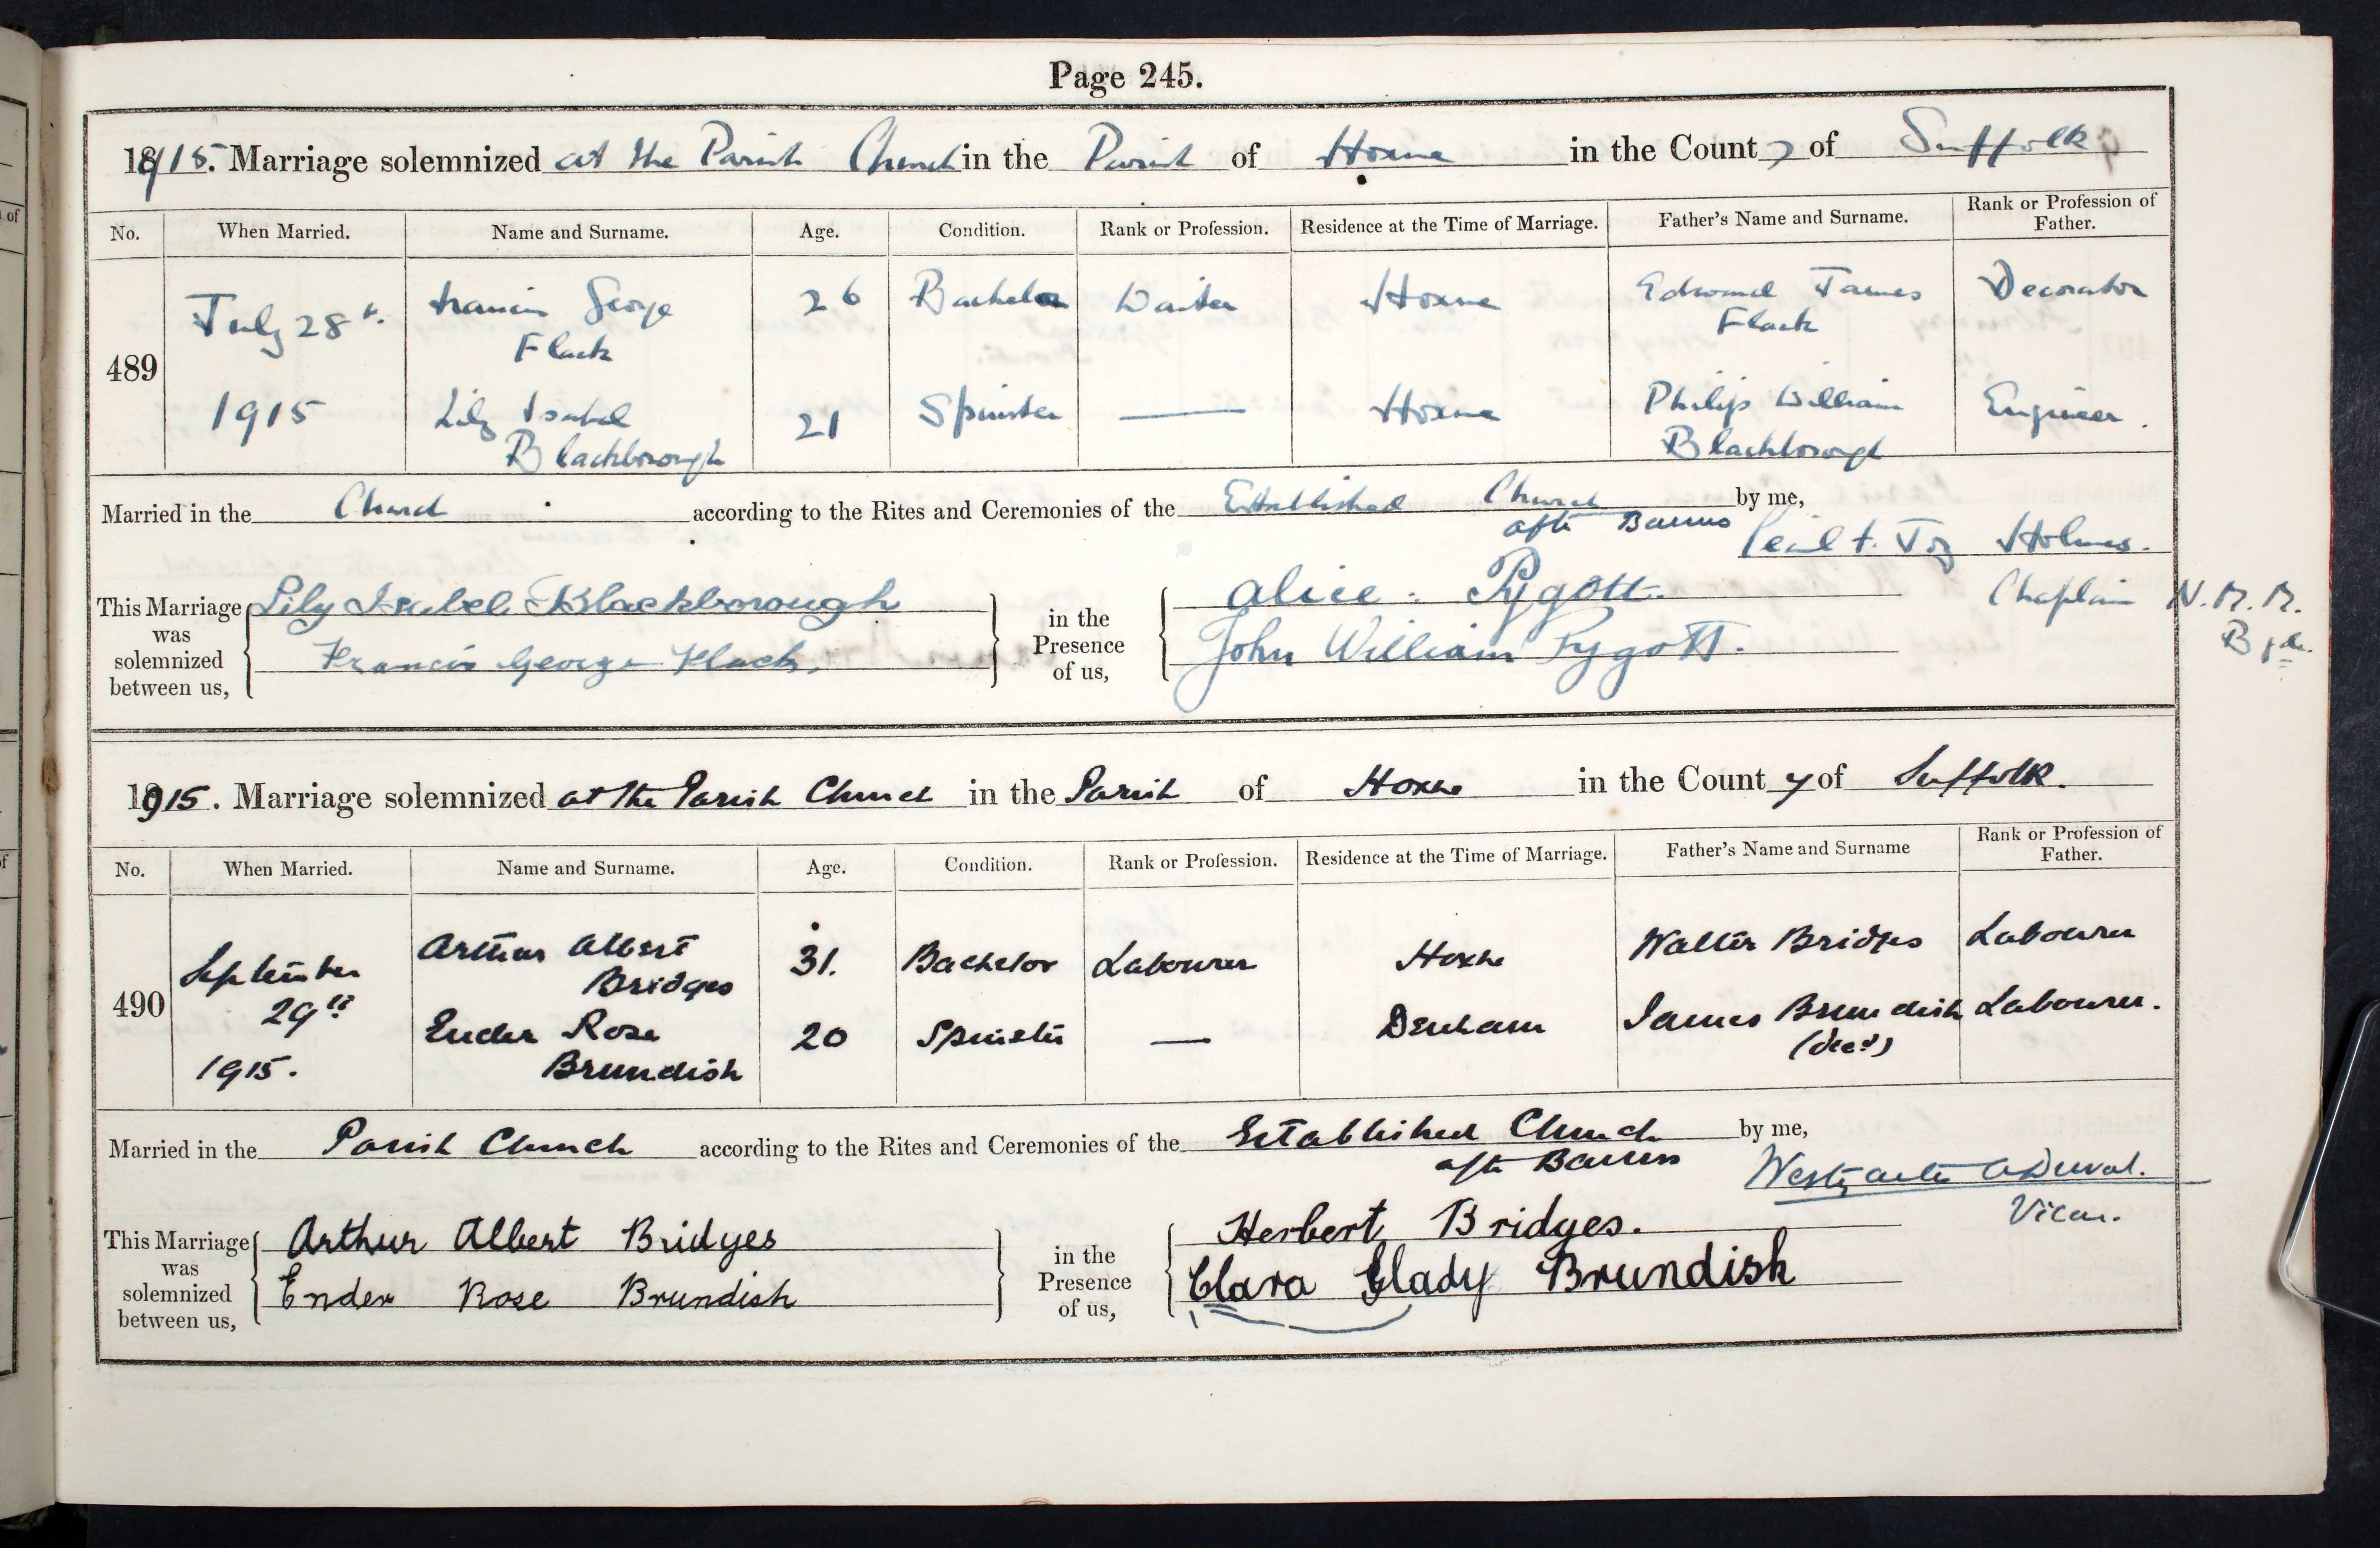 Page 245.
1915. Marriage solemnized at the Parish Church in the Parish of Hoxne in the County of Suffolk
No. When Married. Name and Surname. Age. Condition. Rank or Profession. Residence at the Time of Marriage. Father's Name and Surname. Rank or Profession of Father.
489 July 28th 1915
Francis George Flack 26 Bachelor Waiter Hoxne Edward James Flack Decorator
Lily Isabel Blackborough 21 Spinster — Hoxne Philip William Blackborough Engineer.
Married in the Church according to the Rites and Ceremonies of the Established Church by me,
after Banns
Holmes.
Chaplain
This Marriage was solemnized between us, Lily Isabel Blackborough in the Presence of us, Alice Pygott.
Francis George Flack, John William Pygott.
1915. Marriage solemnized at the Parish Church in the Parish of Hoxne in the County of Suffolk.
No. When Married. Name and Surname. Age. Condition. Rank or Profession. Residence at the Time of Marriage. Father's Name and Surname Rank or Profession of Father.
490 September 29th 1915.
Arthur Albert Bridges 31. Bachelor Labourer Hoxne Walter Bridges Labourer
Ender Rose Brundish 20 Spinster — Denham James Brundish (decd) Labourer.
Married in the Parish Church according to the Rites and Ceremonies of the Established Church by me,
after Banns
Vicar.
This Marriage was solemnized between us, Arthur Albert Bridges in the Presence of us, Herbert Bridges.
Ender Rose Brundish Clara Glady Brundish